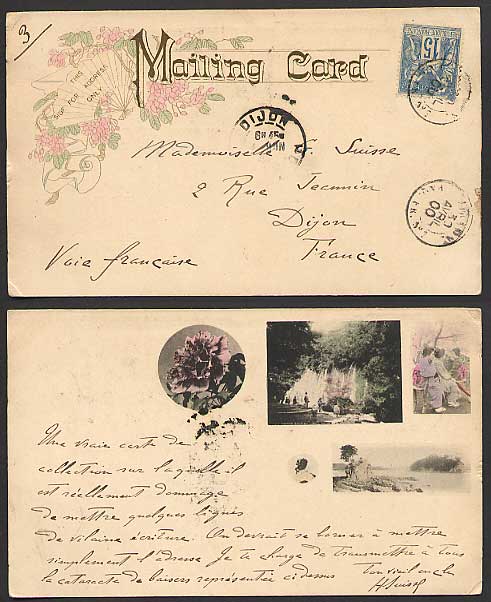 3
THIS
SIDE FOR ADDRESS
ONLY
Mailing Card
15
DIJON
Mademoiselle G. Suisse
2 Rue Jeannin
Dijon
France
Voie française
30
AVRIL
00
Une vraie carte de
collection sur laquelle il
est réellement dommage
de mettre quelques lignes
de vilaine écriture. On devrait se borner à mettre
simplement l'adresse. Je te charge de transmettre à tous
la cataracte de baisers représentée ci dessus
ton vieil oncle
H Suisse